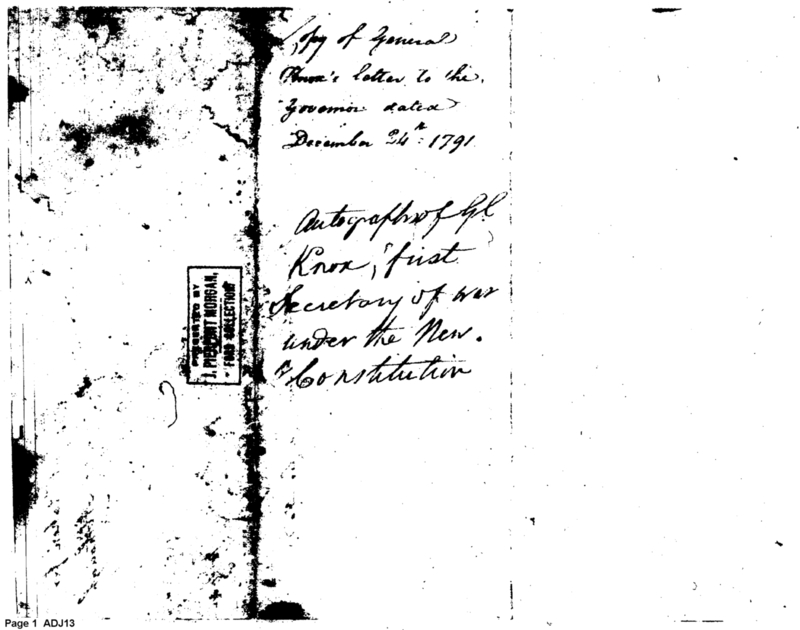 Copy of General
Knox's letter to the
Governor dated
December 24th 1791
Autograph of Gl
Knox, first
Secretary of war
under the New
Constitution
PRESENTED BY
J. PIERPONT MORGAN,
FORD COLLECTION
Page 1 ADJ13